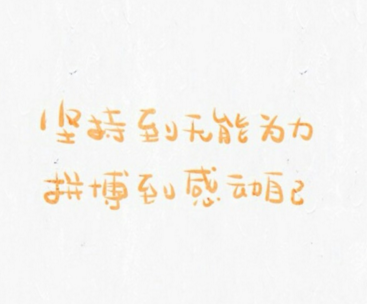 坚持到无能为力
拼博到感动自己